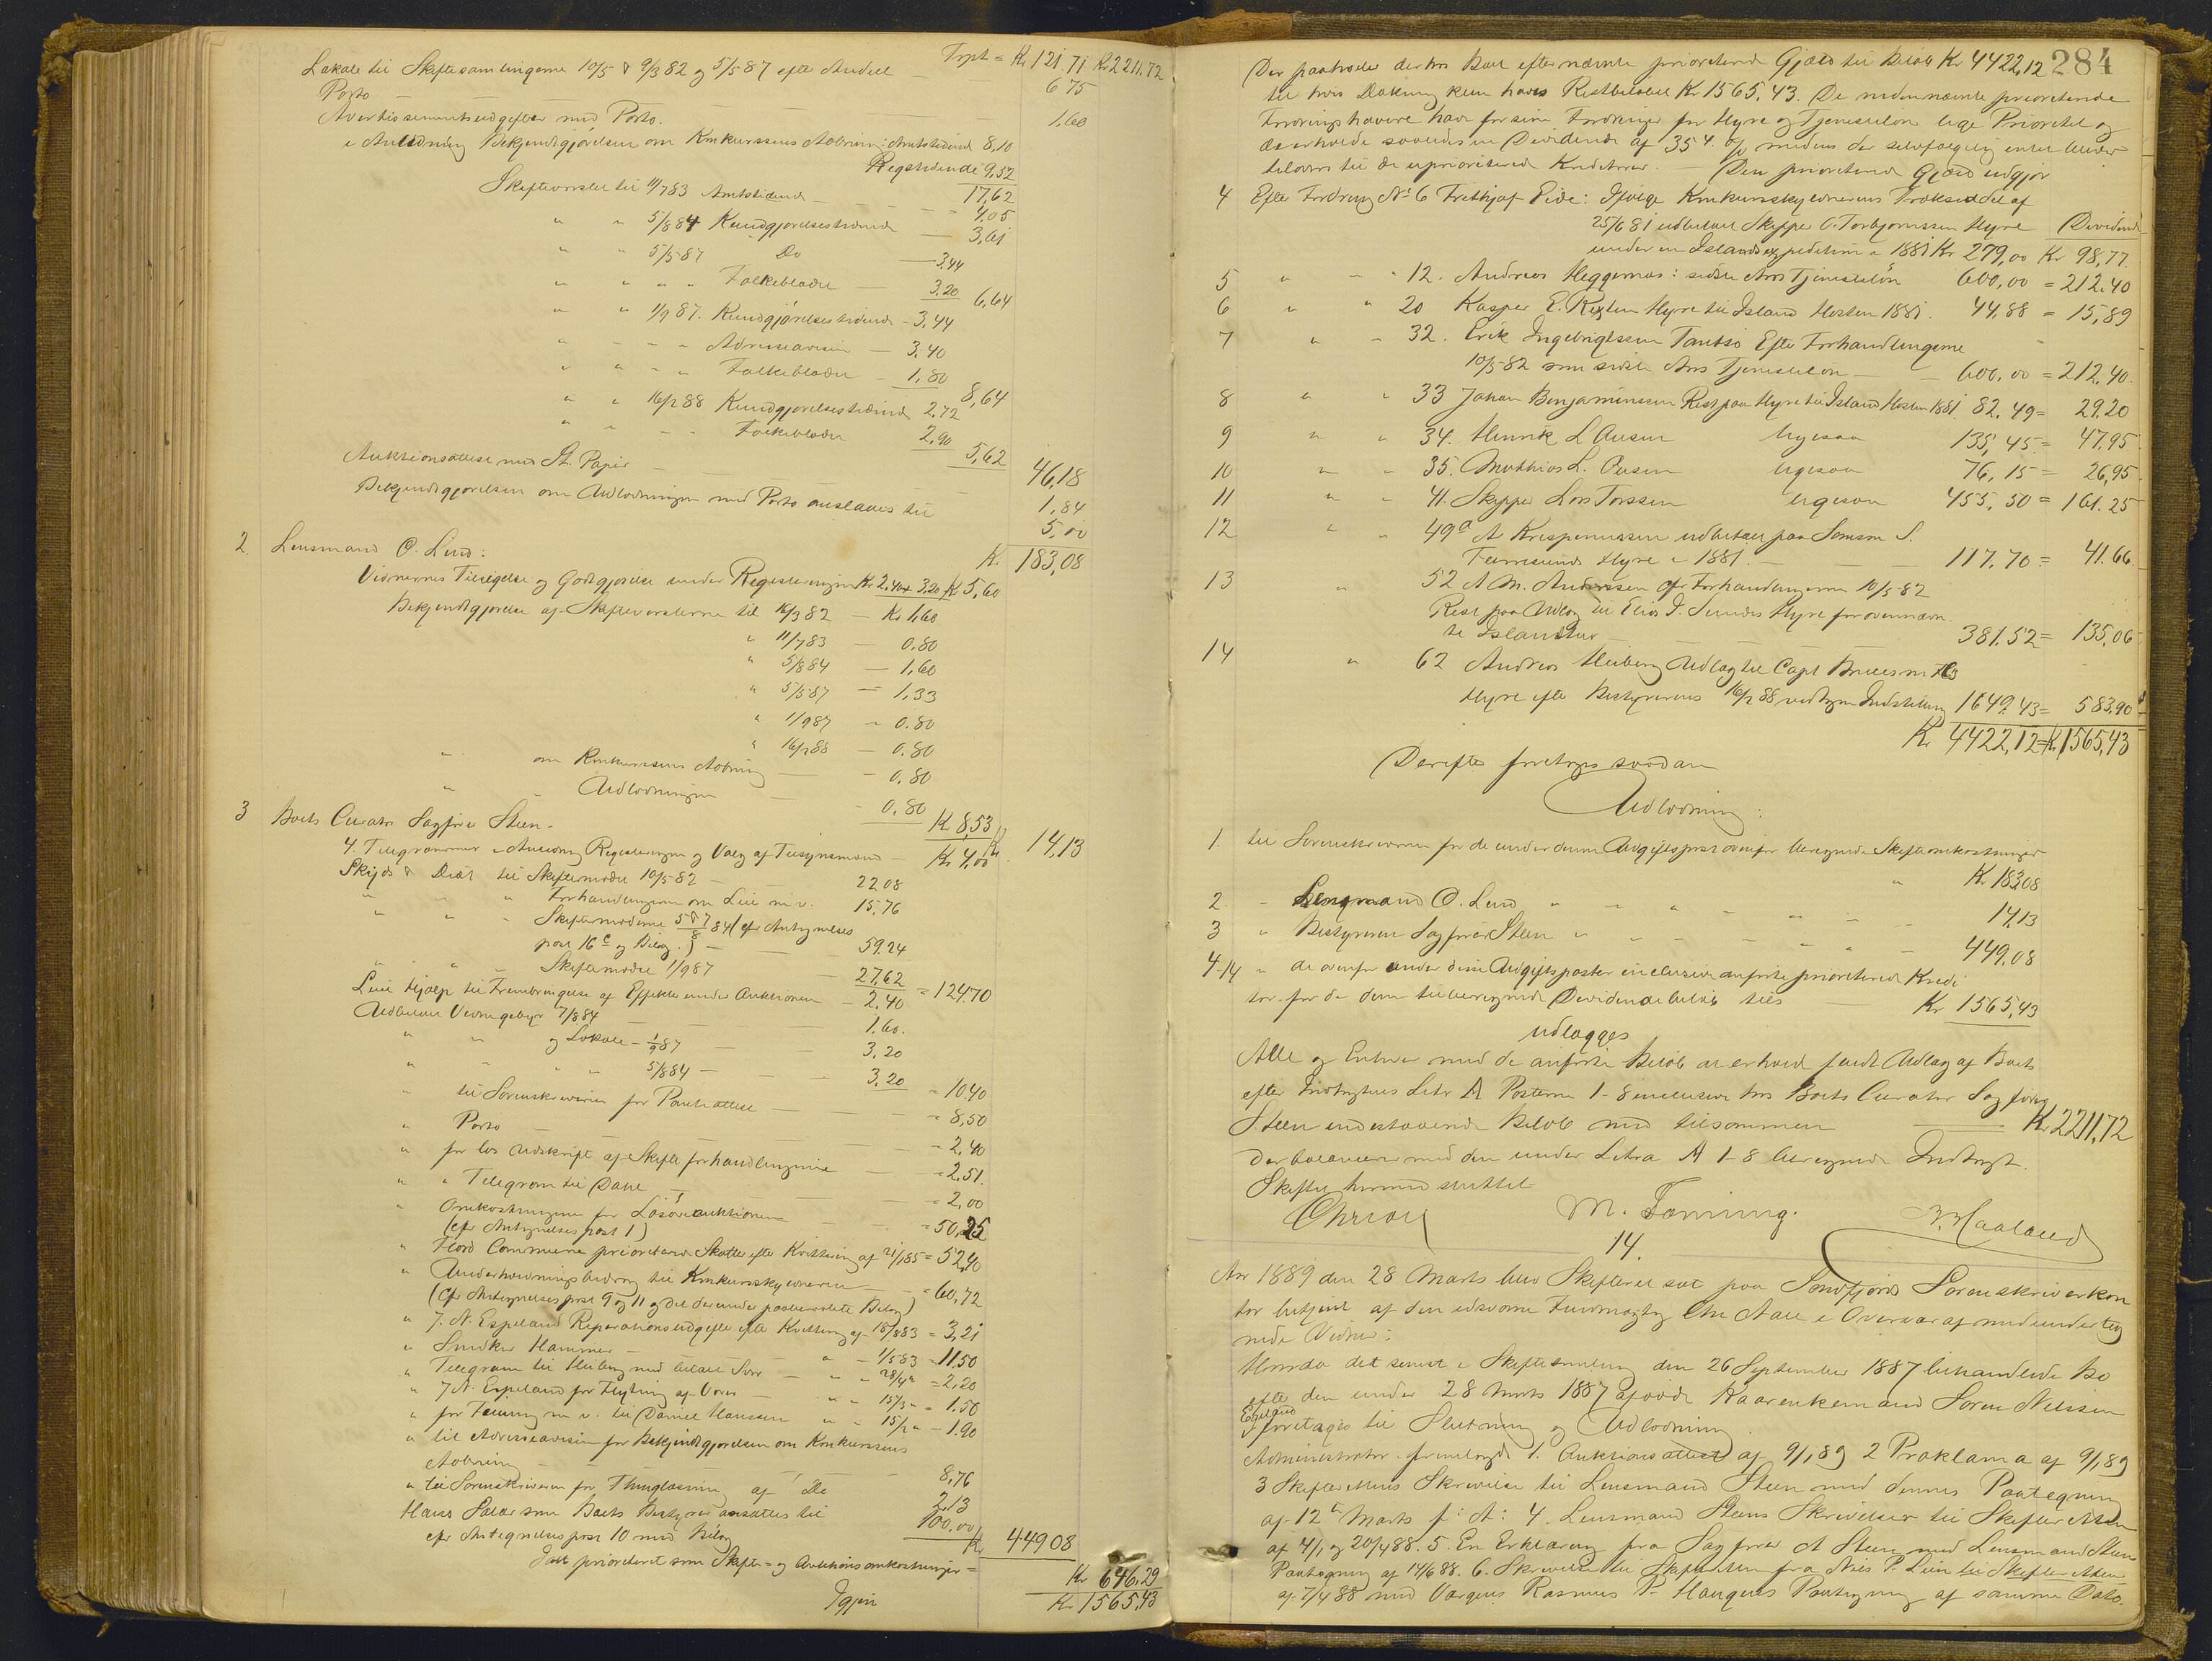 Trpt = Kr 121 71 Kr 2211.72
Lokale til Skiftesamlingerne 10/5 & 9/3 82 og 5/5 87 efter Andel — 6 75
Porto — 1.60
Avertissementsudgifter med Porto.
i Anledning Bekjendtgjørelsen om Konkurssens Aabning: Amtstidende 8,10
Rigstidende 9,52
17,62
Skiftevarslet til 11/7 83 Amtstidende — = 4,05
" " 5/8 84 Kundgjørelsestidende — 3,61
" " 5/5-87 Do — 3,44
" " " " Folkebladet — 3.20 6,64
" " 1/9 87. Kundgjørelsestidende - 3,44
" - - " Adresseavisen — 3,40
" " - " Folkebladet — 1,80 8,64
" " 16/2 88 Kundgjørelsestidende 2,72
" " - - Folkebladet 2,90 5,62
46,18
Auktionsattest med St. Papir — 1,84
Bekjendtgjørelsen om Udlodningen med Porto anslaaes til 5,00
Kr 183,08
2. Lensmand O. Lind:
Vidnernes Tilsigelse og Godtgjørelse under Registreringen Kr 2,40 + 3,20 Kr 5,60
Bekjendtgjørelse af Skiftevarslerne til 16/3 82 — Kr 1,60
" 11/7 83 — 0.80
" 5/8 84 — 1,60
" 5/5 87 — 1,33
" 1/9 87 - 0.80
" 16/2 88 — 0.80
" om Konkurssens Aabning — 0,80
" " Udlodningen - 0.80 Kr 8,53 Kr 14,13
3 Boets Curator Sagfører Steen.
4 Telegrammer i Anledning Registreringen og Valg af Tilsynsmænd — Kr 4,00
Skyds & Diæt til Skiftemøde 10/5-82 — 22 08
" " " Forhandlingerne om Leie m. v. 15,76
" " " Skiftemøderne 5 & 7/8 84 (cfr Antegnelses
post 16 c og Bilag.) — 59.24
" " " " Skiftemødet 1/9 87 27,62 = 124.70
Leiet Hjælp til Frembringelse af Effekter under Auktionen — 2.40
Udbetalt Vidnegebyr 7/8 84 — 1.60.
" " og Lokale - 1/9 87 — 3,20
" " " " 5/8 84 — 3,20 = 10.40
" til Sorenskriveren for Panteattest — = 8,50
" Porto — = 2,40
" for los Udskrift af Skifteforhandlingerne — = 2,51.
" " Telegram til Dahl — = 2,00
" Omkostningerne for Løsøreauktionen — = 50,25
(cfr Antegnelses post 1)
" Florø Commune prioriterede Skatter efter Kvittering af 21/1 85 = 52,40
" Underholdningsbidrag til Konkursskyldneren — = 60,72
(cfr Antegnelsespost 9 og 11 og det derunder paaberaabte Bilag)
" J. N. Espeland Reparationsudgifter efter Kvittering af 18/8 83 = 3,21
" Smeker Hammer — " - 1/5 83 = 11.50
" Telegram til Heiberg med betalt Svar — " - 28/4 " = 2,20
" J. N. Espeland for Flytning af Varer — " " 15/3 " = 1,50
" for Tæring m. v. til Daniel Hanssen " " 15/2 " - 1.90
" til Adresseavisen for Bekjendtgjørelsen om Konkurssens
Aabning — 8,76
" til Sorenskriveren for Thinglæsning af Do 2,13
Hans Salær som Boets Bestyrer ansættes til 100,00
cfr Antegnelsespost 10 med Bilag Kr 449 08
Ialt prioriteret som Skifte- og Auktionsomkostninger = Kr 646,29
Igjen Kr. 1565,43
284
Der paahviler derhos Boet efternævnte prioriterede Gjæld til Beløb Kr 4422,12
til hvis Dækning kun haves Restbeløbet Kr 1565,43. De nedennævnte prioriterede
Fordringshavere have for sine Fordringer for Hyre og Tjenesteløn lige Prioritet og
de erholde saaledes en Dividende af 35 4. % medens der selvfølgelig intet bliver
tilovers til de uprioriterede Kreditorer. — Den prioriterede Gjæld udgjør
4 Efter Fordring No 6 Frithjof Eide: Ifølge Konkursskyldnerens Traksedel af
25/6 81 udbetalt Skipper O. Torbjørnssen Hyre Dividende
under en Islandsexpedition i 1881 Kr 279,00 Kr 98,77.
5 " - " 12. Andreas Heggernæs: sidste Aars Tjenesteløn 600,00 = 212.40
6 " " 20 Kasper E. Hyre til Island Høsten 1881. 44.88 = 15,89
7 " - 32. Erik Ingebrigtssen Tansø Efter Forhandlingerne
10/5-82 som sidste Aars Tjenesteløn — 600.00 = 212,40.
8 " " 33 Johan Benjaminssen Rest paa Hyre til Island Høsten 1881 82.49 = 29.20
9 " " 34. Henrik L. ligesaa 135,45 = 47.95.
10 " - 35. Mathias L. ligesaa 76,15 = 26,95
11 " - 41. Skipper Lars Torssen ligesaa 455,50 = 161.25
12 " " 49a A udbetalt paa Samson S.
Hyre i 1881. — 117.70 = 41.66
13 " 52 A M. Anderssen cfr Forhandlingerne 10/5-82
Rest paa Udlæg til Elias I. Hyre for ovennævn-
te Islandstur — 381.52 = 135,06
14 " 62 Andreas Heiberg Udlæg til Capt
Hyre efter Bestyrerens 16/2 88 vedtagne Indstilling 1649.43 = 583,90
Kr 4422,12 = Kr. 1565,43
Derefter foretoges saadan
Udlodning:
1. til Sorenskriveren for de under denne Udgiftspost ovenfor beregnede Skifteomkostninger
" Kr. 183.08
2. - Lensmand O. Lind " - " - " - 14,13
3 " Bestyreren Sagfører Steen " - " - " - 449,08
4-14 " de ovenfor under disse Udgiftsposter inclusive anførte prioriterede Kredi-
torer for de dem tilberegnede Dividendebeløb tils — Kr 1565,43
udlægges
Alle og Enhver med de anførte Beløb at erholde fuldt Udlæg af Boets
efter Indtægtens Litr A Posterne 1-8 inclusive hos Boets Curator Sagfører
Steen indestaaende Beløb med tilsammen — Kr 2211,72
Der balancerer med den under Litra A 1-8 beregnede Indtægt.
Skiftet hermed sluttet
Chr Aall M. Førning. B. Haaland
14.
Aar 1889 den 28 Marts blev Skifteret sat paa Søndfjords Sorenskriverkon-
tor betjent af den edsvorne Fuldmægtig Chr Aall i Overvær af medunderteg-
nede Vidner:
Hvorda det senest i Skiftesamling den 26 September 1887 behandlede Bo
efter den under 28 Marts 1887 afdøde Kaarenkemand Søren Nilssen
Espeland foretages til Slutning og Udlodning.
Administrator fremlagde 1. Auktionsattest af 9/1 89 2 Proklama af 9/1 89
3 Skifterettens Skrivelse til Lensmand Steen med dennes Paategning
af 12te Marts f: A: 4. Lensmand Steens Skrivelser til Skifteretten
af 4/1 og 20/4 88. 5. En Erklæring fra Sagfører A Steen med Lensmand Steens
Paategning af 14/6 88. 6. Skrivelse til Skifteretten fra Nils P. Lien til Skifteretten
af 7/4 88 med Værgens Rasmus P. Haugens Paategning af samme Dato.